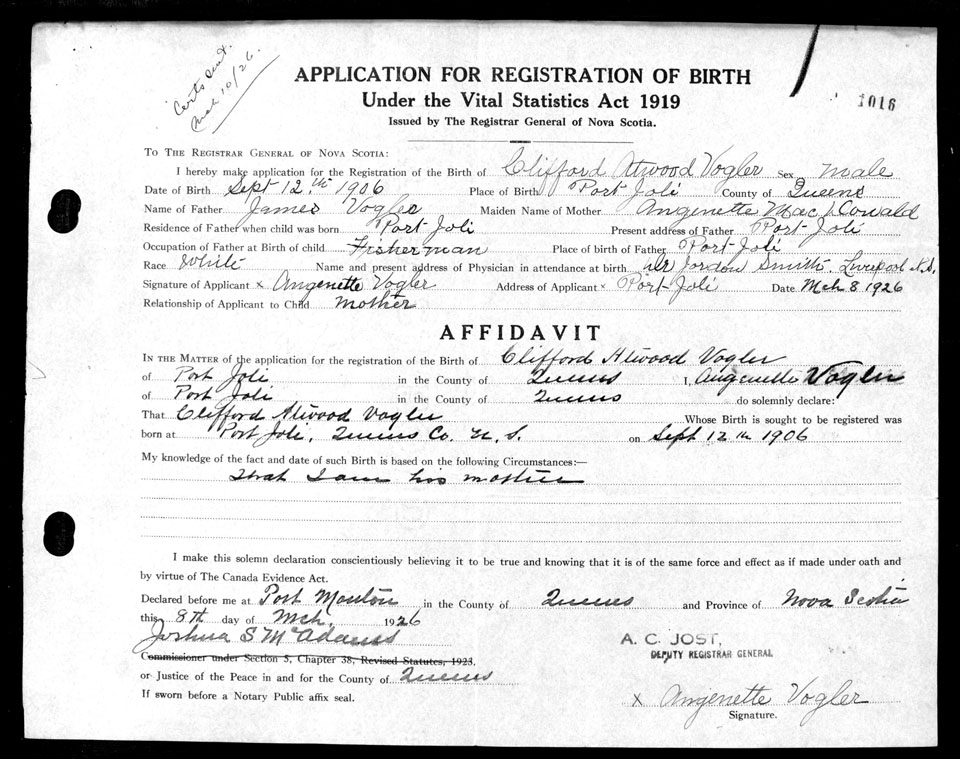 Certs sent.
Mch 10/26.
APPLICATION FOR REGISTRATION OF BIRTH
Under the Vital Statistics Act 1919
Issued by The Registrar General of Nova Scotia.
1016
To The Registrar General of Nova Scotia:
I hereby make application for the Registration of the Birth of Clifford Atwood Vogler Sex male
Date of Birth Sept 12th 1906 Place of Birth Port Joli County of Queens
Name of Father James Vogler Maiden Name of Mother Angenette MacDonald
Residence of Father when child was born Port Joli Present address of Father Port Joli
Occupation of Father at Birth of child Fisherman Place of birth of Father Port Joli
Race White Name and present address of Physician in attendance at birth Dr Jordon Smith. Liverpool N.S.
Signature of Applicant x Angenette Vogler Address of Applicant x Port Joli Date Mch 8 1926
Relationship of Applicant to Child Mother
AFFIDAVIT
In the Matter of the application for the registration of the Birth of Clifford Atwood Vogler
of Port Joli in the County of Queens I, Angenette Vogler
of Port Joli in the County of Queens do solemnly declare:
That Clifford Atwood Vogler Whose Birth is sought to be registered was
born at Port Joli, Queens Co. N. S. on Sept 12th 1906
My knowledge of the fact and date of such Birth is based on the following Circumstances:—
That I am his mother
I make this solemn declaration conscientiously believing it to be true and knowing that it is of the same force and effect as if made under oath and
by virtue of The Canada Evidence Act.
Declared before me at Port Mouton in the County of Queens and Province of Nova Scotia
this 8th day of Mch. 1926
Joshua S McAdams
A. C. JOST,
DEPUTY REGISTRAR GENERAL
Commissioner under Section 5, Chapter 38, Revised Statutes, 1923.
or Justice of the Peace in and for the County of Queens
If sworn before a Notary Public affix seal.
x Angenette Vogler
Signature.